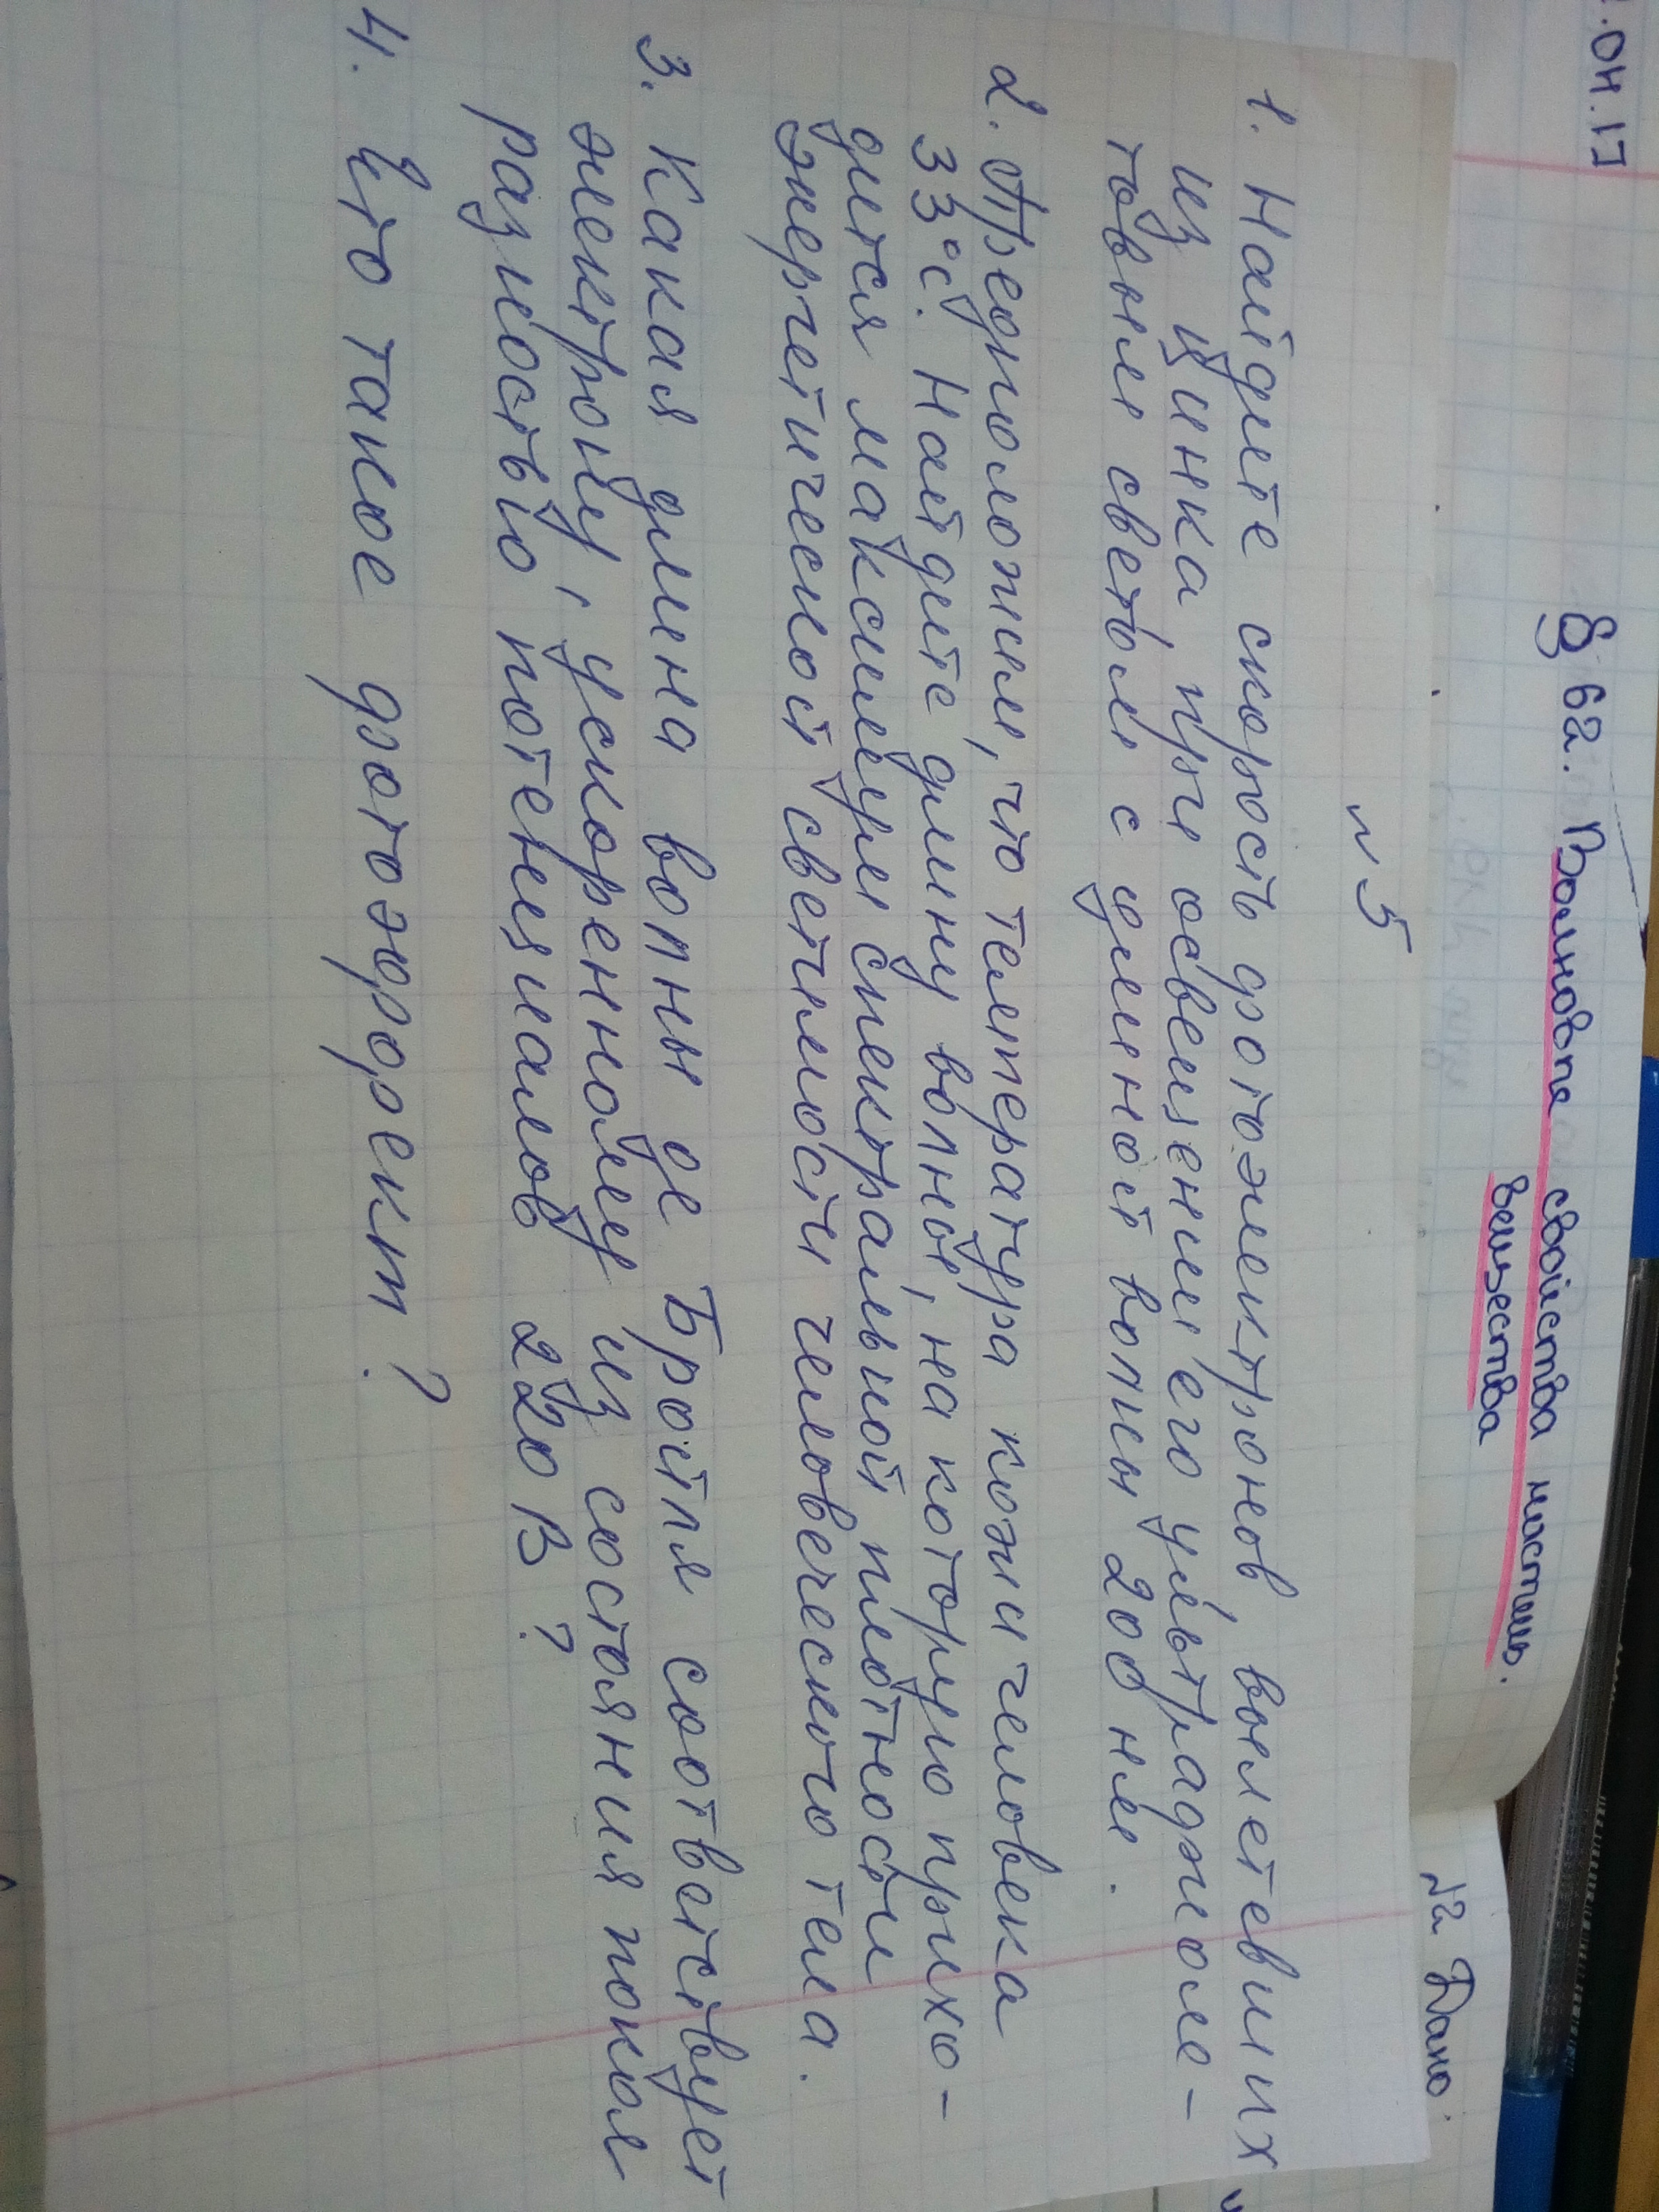 .04.17
§ 62. Волновые свойства частиц
вещества
№ 5
1. Найдите скорость фотоэлектронов, вылетевших
из цинка, при освещении его ультрафиоле-
товым светом с длиной волны 200 нм.
2. Предположим, что температура кожи человека
33°С. Найдите длину волны, на которую прихо-
дится максимум спектральной плотности
энергетической светимости человеческого тела.
3. Какая длина волны де Бройля соответствует
электрону, ускоренному из состояния покоя
разностью потенциалов 220 В?
4. Что такое фотоэффект?
Дано: